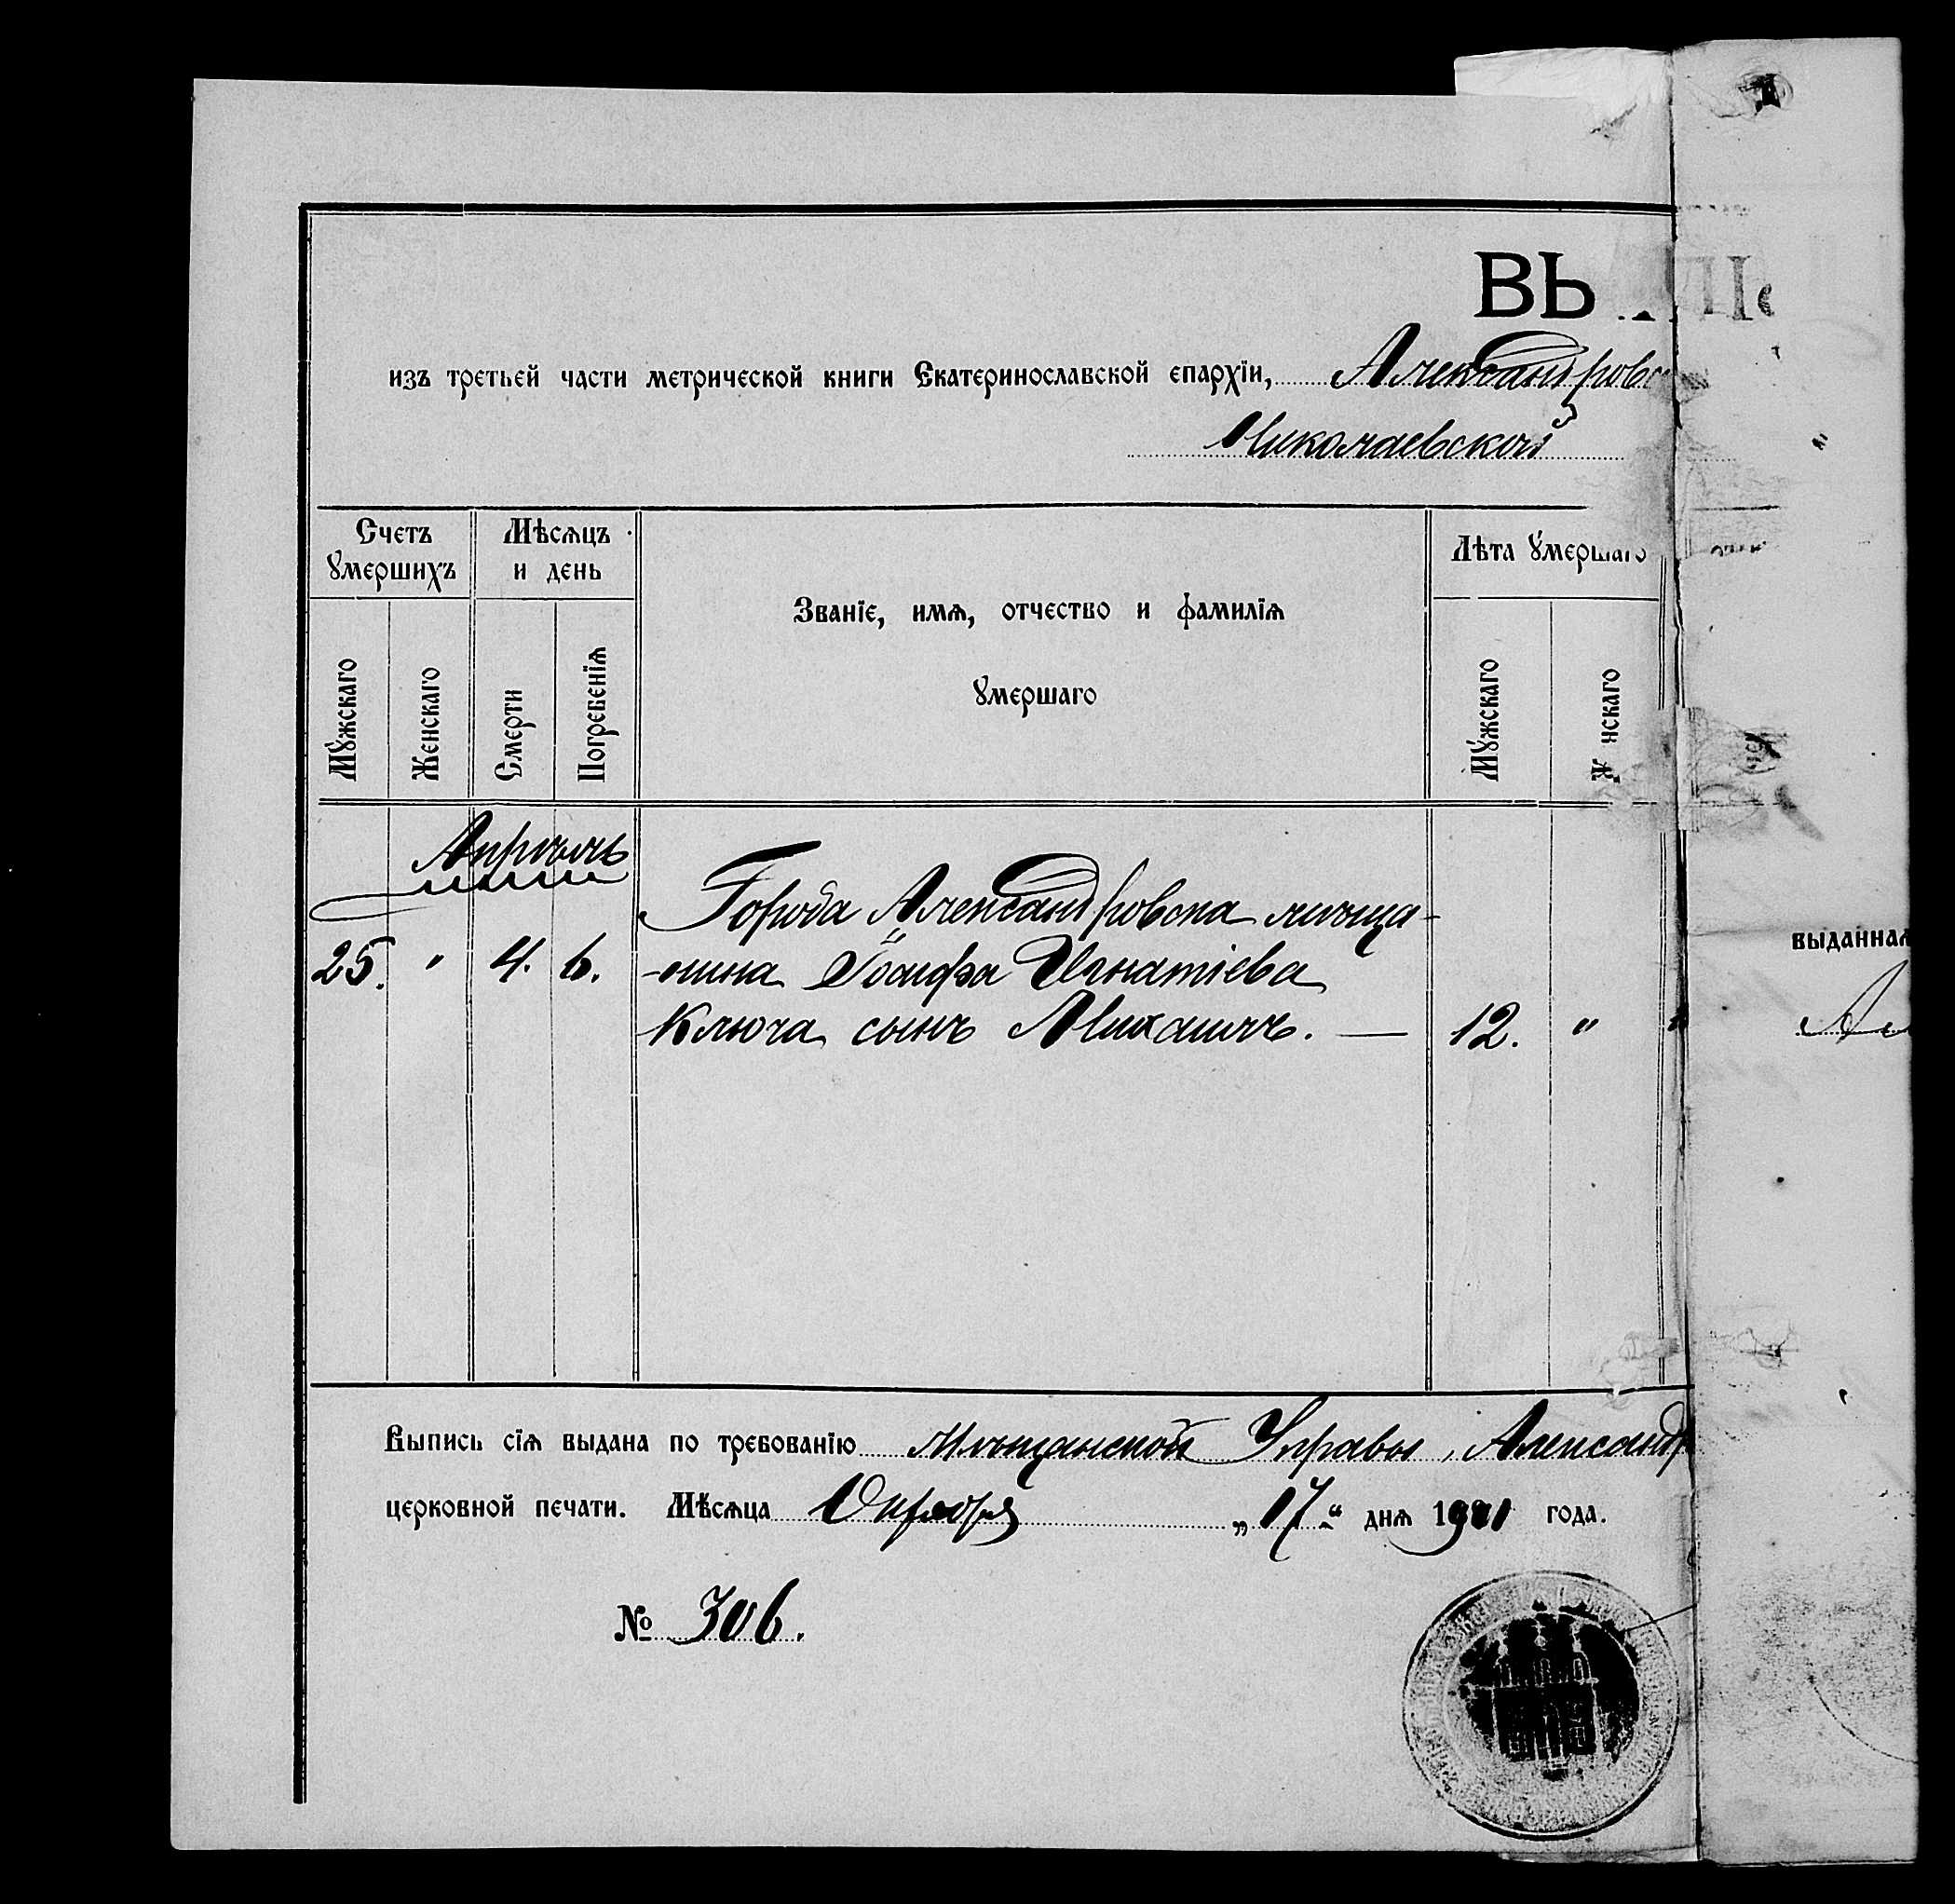 ВЫ
изъ третьей части метрической книги Екатеринославской епархіи, Александровс
Николаевской
Счетъ умершихъ
Мѣсяцъ и день
Званіе, имя, отчество и фамилія
умершаго
Лѣта умершаго
Мужскаго
Женскаго
Смерти
Погребенія
Мужскаго
Ж нскаго
Апрѣль
Города Александровска мѣща-
25. " 4. 6. -нина Іосифа Игнатіева
Ключа сынъ Михаилъ. — 12. "
выданная
Ал
Выпись сія выдана по требованію Мѣщанской Управы, Александр
церковной печати. Мѣсяца Октября „17“ дня 1901 года.
№ 306.